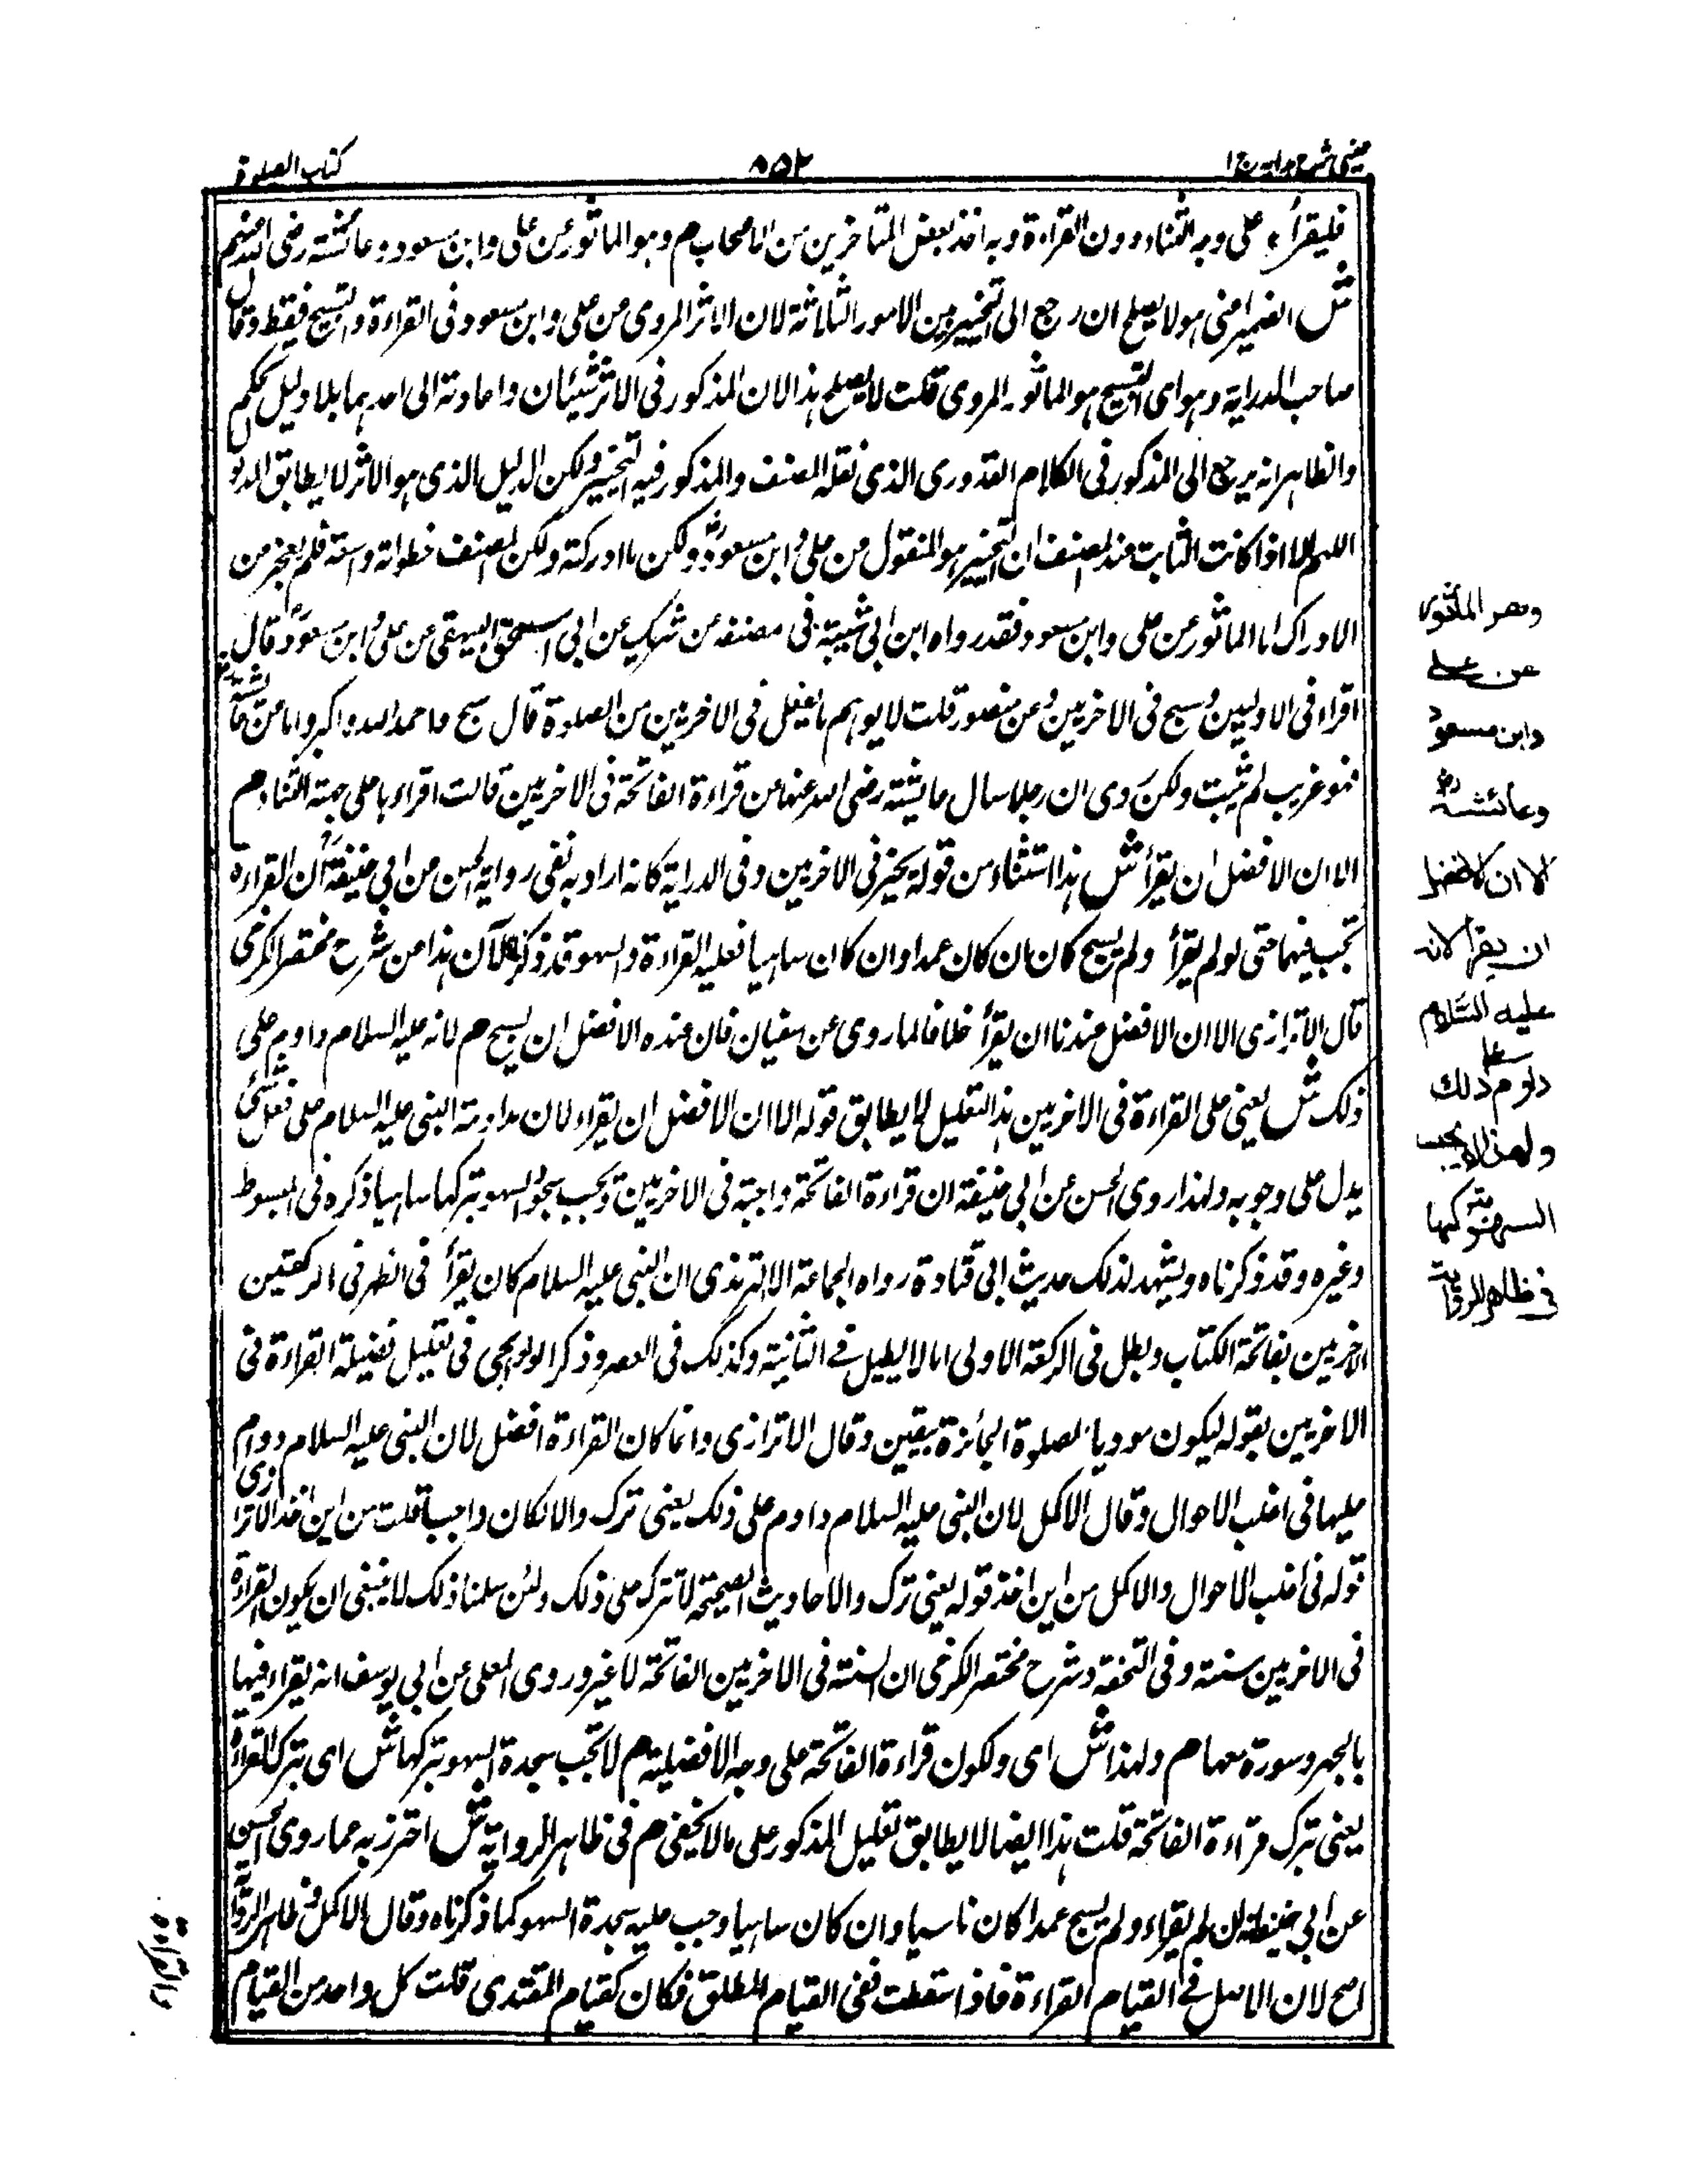 عینی شرح ہدایہ ج ۱
۸۵۲
کتاب الصلوة
فلیقرأ علی وجه الثناء دون القراءة وبه اخذ بعض المتأخرین من الاصحاب م وهو الماثور عن علی وابن مسعود وعائشة رضی الله عنهم
ش الضمیر اعنی هو لا یصلح ان رجع الی التخییر بین الامور الثلاثة لان الاثر المروی عن علی وابن مسعود فی القراءة والتسبیح فقط وقال
صاحب الدرایة وهو ای التسبیح هو الماثور المروی قلت لا یصلح هذا لان المذکور فی الاثر شیئان واعادته الی احدهما بلا دلیل تحکم
والظاهر انه یرجع الی المذکور فی الکلام القدوری الذی نقله المصنف والمذکور فیه التخییر ولکن الدلیل الذی هو الاثر لا یطابق المدلول
اللهم الا اذا کانت الثابت عند المصنف ان التخییر هو المنقول من علی وابن مسعود ولکن ما ادرکته ولکن المصنف خطواته واسعة فلم یعجز من
الادراک اما الماثور عن علی وابن مسعود فقد رواه ابن ابی شیبة فی مصنفه عن شریک عن ابی اسحق البیهقی عن علی وابن مسعود قال
اقراء فی الاولیین وسبح فی الاخریین وعن منصور قلت لابراهیم ما یفعل فی الاخریین من الصلوة قال سبح واحمد الله وکبر واما من عائشة
فهو غریب لم یثبت ولکن روی ان رجلا سال عایشة رضی الله عنها عن قراءة الفاتحة فی الاخریین قالت اقراء ها علی جهة الثناء م
الا ان الافضل ان یقرأ ش هذا استثناء من قوله یخیر فی الاخریین وفی الدرایة کانه اراد به نفی روایة الحسن من ابی حنیفة ان القراءة
تجب فیهما حتی لو لم یقرأ ولم یسبح کان ان کان عمدا وان کان ساهیا فعلیه القراءة والسهو قد ذکر الآن هذا من شرح مختصر الکرخی
قال الاترازی الا ان الافضل عندنا ان یقرأ خلافا لما روی عن سفیان فان عنده الافضل ان یسبح م لانه علیه السلام داوم علی
ذلک ش یعنی علی القراءة فی الاخریین هذا التعلیل لا یطابق قوله الا ان الافضل ان یقراء لان مداومة النبی علیه السلام علی فعل شئ
یدل علی وجوبه ولهذا روی الحسن عن ابی حنیفة ان قراءة الفاتحة واجبة فی الاخریین وتجب سجود السهو بترکها ساهیا ذکره فی المبسوط
وغیره وقد ذکرناه ویشهد لذلک حدیث ابی قتادة رواه الجماعة الا الترمذی ان النبی علیه السلام کان یقرأ فی الظهر فی الرکعتین
الاخریین بفاتحة الکتاب ویطل فی الرکعة الاولی ما لا یطیل فی الثانیة وکذلک فی العصر وذکر الولوالجی فی تعلیل فضیلة القراءة فی
الاخریین بقوله لیکون مودیا الصلوة الجائزة بیقین وقال الاترازی وانما کان القراءة افضل لان النبی علیه السلام دوام
علیها فی اغلب الاحوال وقال الاکمل لان النبی علیه السلام داوم علی ذلک یعنی ترک والا لکان واجبا قلت من این اخذ الاترازی
قوله فی اغلب الاحوال والاکمل من این اخذ قوله یعنی ترک والاحادیث الصحیحة لا ترک علی ذلک ولئن سلمنا ذلک لا ینبغی ان یکون القراءة
فی الاخریین سنة وفی التحفة وشرح مختصر الکرخی ان السنة فی الاخریین الفاتحة لا غیر وروی المعلی عن ابی یوسف انه یقراء فیها
بالجهر وسورة معها م ولهذا ش ای ولکون قراءة الفاتحة علی وجه الافضلیة م لا تجب سجدة السهو بترکها ش ای بترک القراءة
یعنی بترک قراءة الفاتحة قلت هذا ایضا لا یطابق تعلیل المذکور علی ما لا یخفی م فی ظاهر الروایة ش احترز به عما روی الحسن
عن ابی حنیفة ان لم یقراء ولم یسبح عمدا کان ناسیا وان کان ساهیا وجب علیه سجدة السهو کما ذکرناه وقال الاکمل فی ظاهر الروایة
اصح لان الاصل فی القیام القراءة فاذا سقطت فغی القیام المطلق فکان کقیام المقتدی قلت کل واحد من القیام
وهو الماثور
عن علی
وابن مسعود
وعائشة رض
الا ان الافضل
ان یقرأ لانه
علیه السلام
داوم علی ذلك
ولهذا لا یجب
السهو بترکها
فی ظاهر الروایة
والقراءة